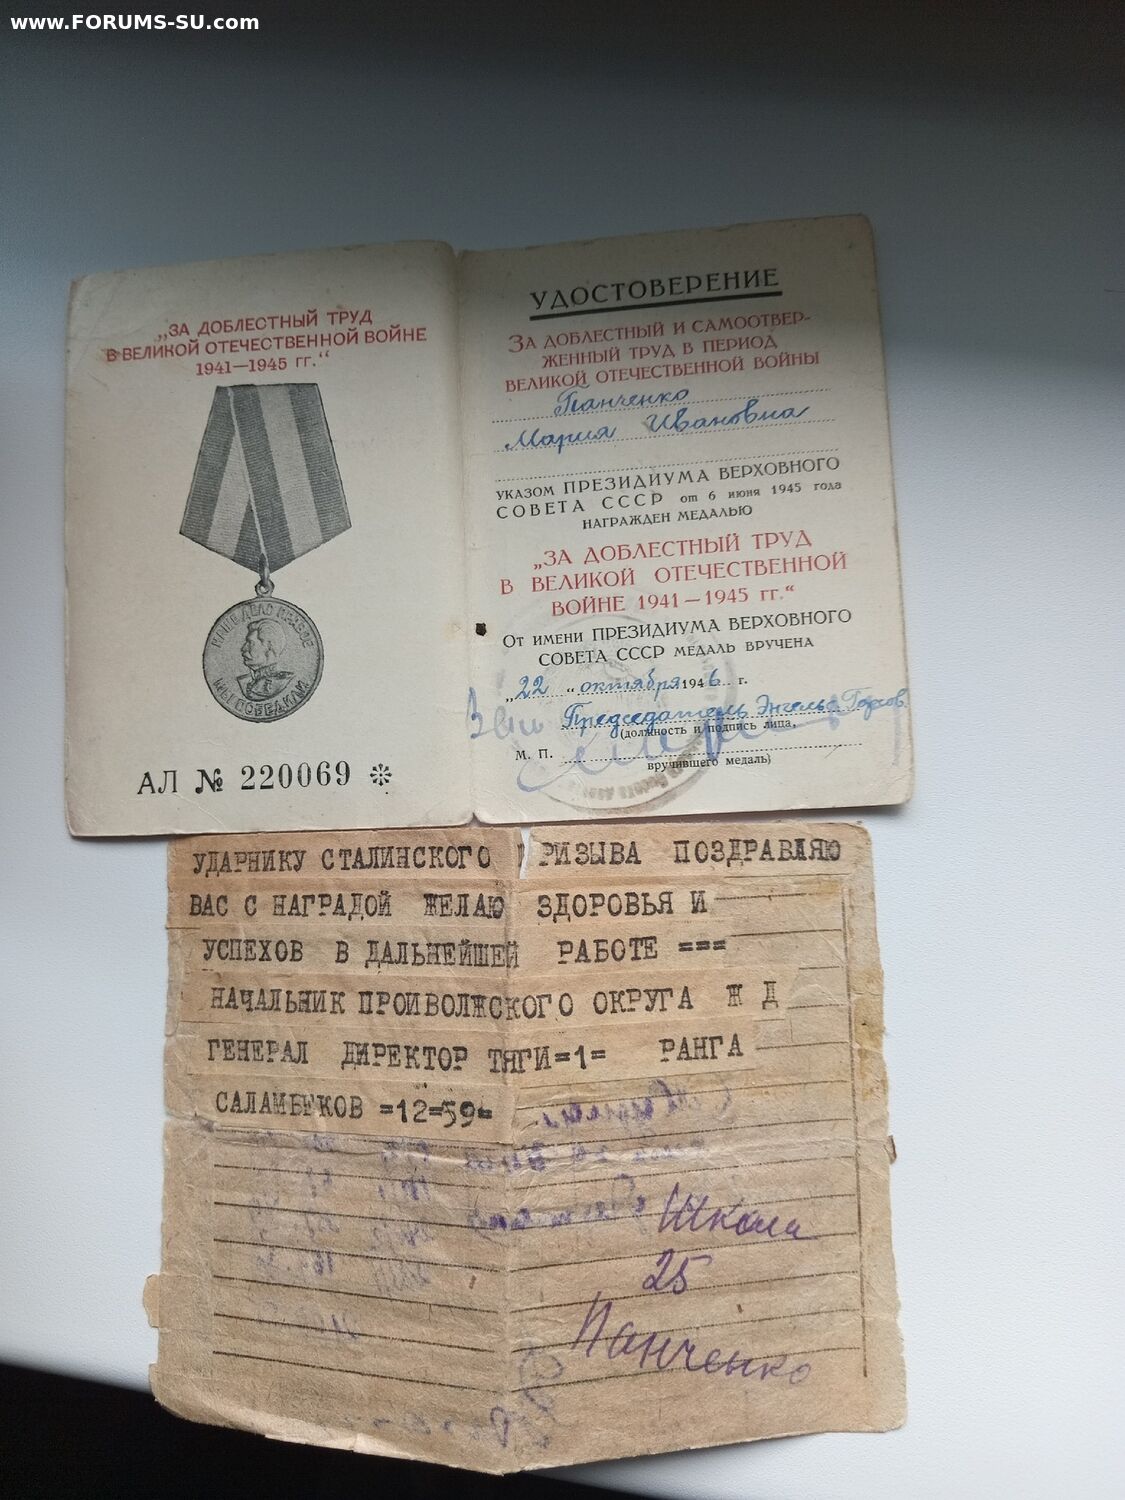 www.FORUMS-SU.com
„ЗА ДОБЛЕСТНЫЙ ТРУД
В ВЕЛИКОЙ ОТЕЧЕСТВЕННОЙ ВОЙНЕ
1941—1945 гг.“
НАШЕ ДЕЛО ПРАВОЕ
МЫ ПОБЕДИЛИ
АЛ № 220069 ※
УДОСТОВЕРЕНИЕ
ЗА ДОБЛЕСТНЫЙ И САМООТВЕР-
ЖЕННЫЙ ТРУД В ПЕРИОД
ВЕЛИКОЙ ОТЕЧЕСТВЕННОЙ ВОЙНЫ
Панченко
Мария Ивановна
УКАЗОМ ПРЕЗИДИУМА ВЕРХОВНОГО
СОВЕТА СССР от 6 июня 1945 года
НАГРАЖДЕН МЕДАЛЬЮ
„ЗА ДОБЛЕСТНЫЙ ТРУД
В ВЕЛИКОЙ ОТЕЧЕСТВЕННОЙ
ВОЙНЕ 1941—1945 гг.“
ОТ ИМЕНИ ПРЕЗИДИУМА ВЕРХОВНОГО
СОВЕТА СССР МЕДАЛЬ ВРУЧЕНА
„22 “ октября 1946 г.
Председатель Энгельс
(должность и подпись лица,
М. П.
вручившего медаль)
УДАРНИКУ СТАЛИНСКОГО ПРИЗЫВА ПОЗДРАВЛЯЮ
ВАС С НАГРАДОЙ ЖЕЛАЮ ЗДОРОВЬЯ И
УСПЕХОВ В ДАЛЬНЕЙШЕЙ РАБОТЕ ===
НАЧАЛЬНИК ПРОИВОЛЖСКОГО ОКРУГА Ж Д
ГЕНЕРАЛ ДИРЕКТОР ТЯГИ=1= РАНГА
САЛАМБЕКОВ =12=59=
Школа
25
Панченко